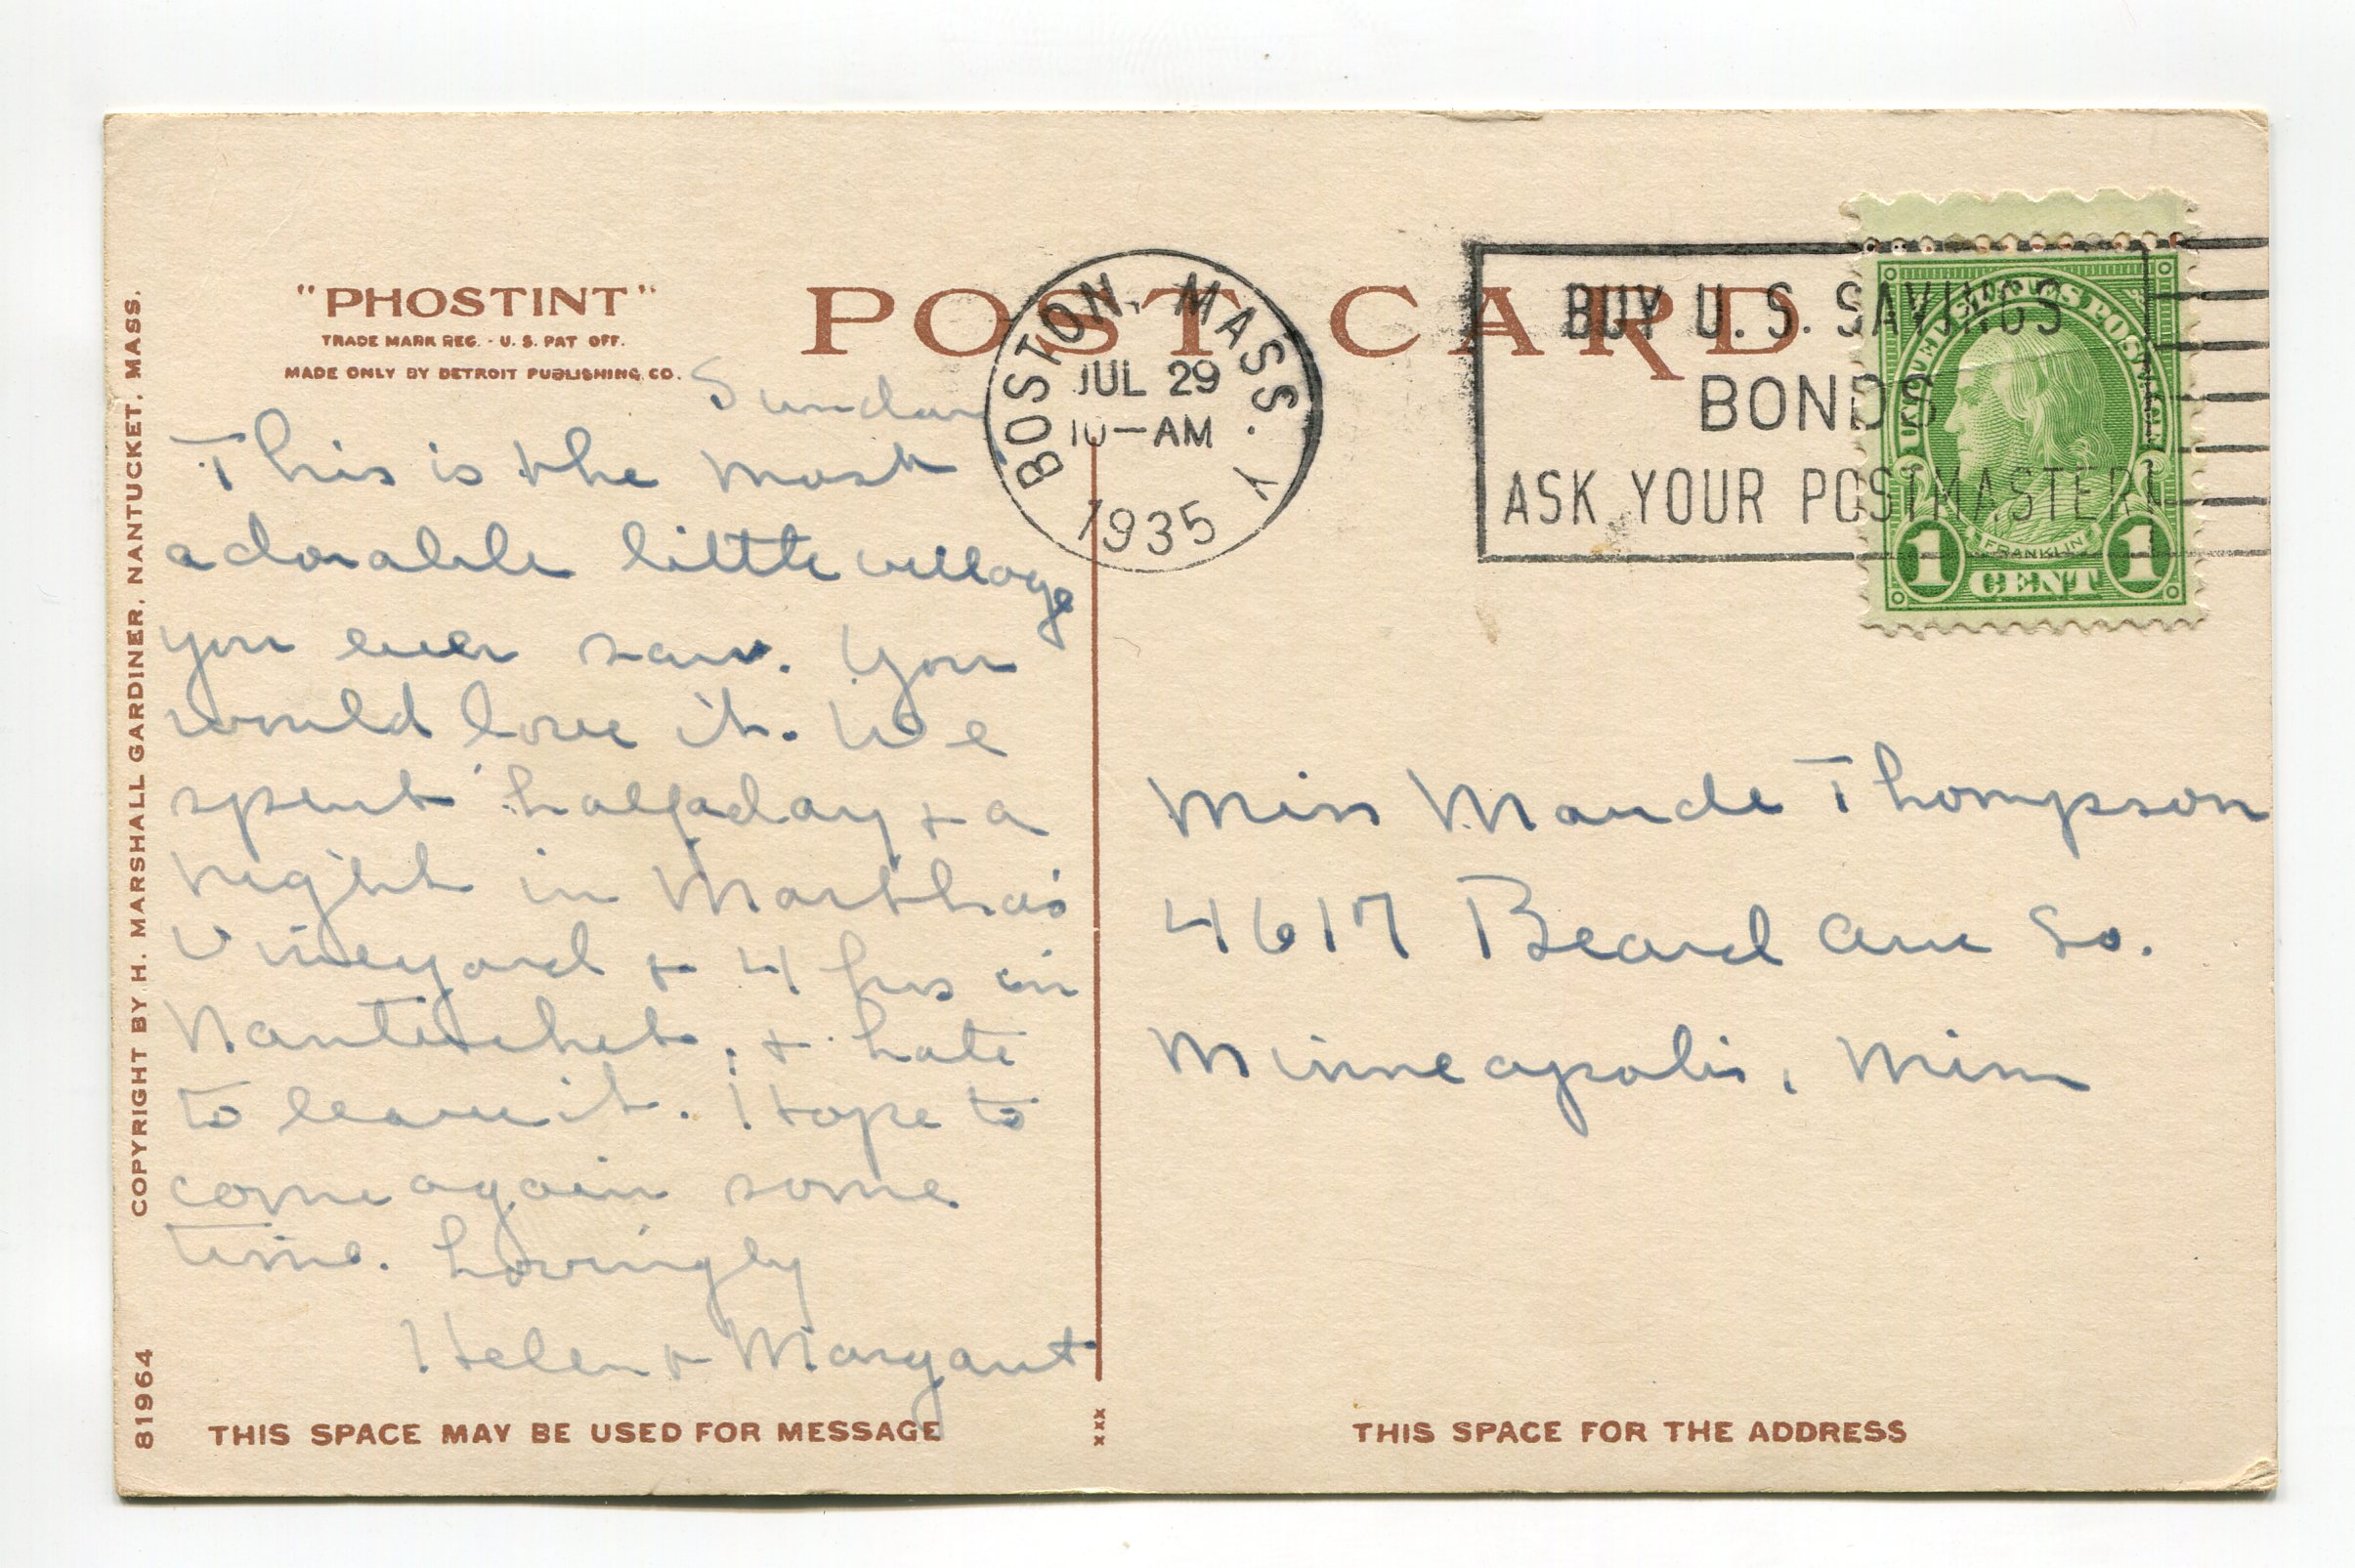 "PHOSTINT"
TRADE MARK REG. - U. S. PAT OFF.
MADE ONLY BY DETROIT PUBLISHING CO.
POST CARD
BOSTON, MASS. Y
JUL 29
10-AM
1935
BUY U. S. SAVINGS
BONDS
ASK YOUR POSTMASTER
UNITED STATES POSTAGE
FRANKLIN
1 CENT 1
COPYRIGHT BY H. MARSHALL GARDINER, NANTUCKET, MASS.
81964
Sunday
This is the most
adorable little village
you ever saw. You
would love it. We
spent half a day + a
night in Martha's
Vineyard + 4 hrs in
Nantucket, + hate
to leave it. Hope to
come again some
time. Lovingly
Helen + Margaret
Miss Maude Thompson
4617 Beard Ave So.
Minneapolis, Minn
THIS SPACE MAY BE USED FOR MESSAGE
xxx
THIS SPACE FOR THE ADDRESS